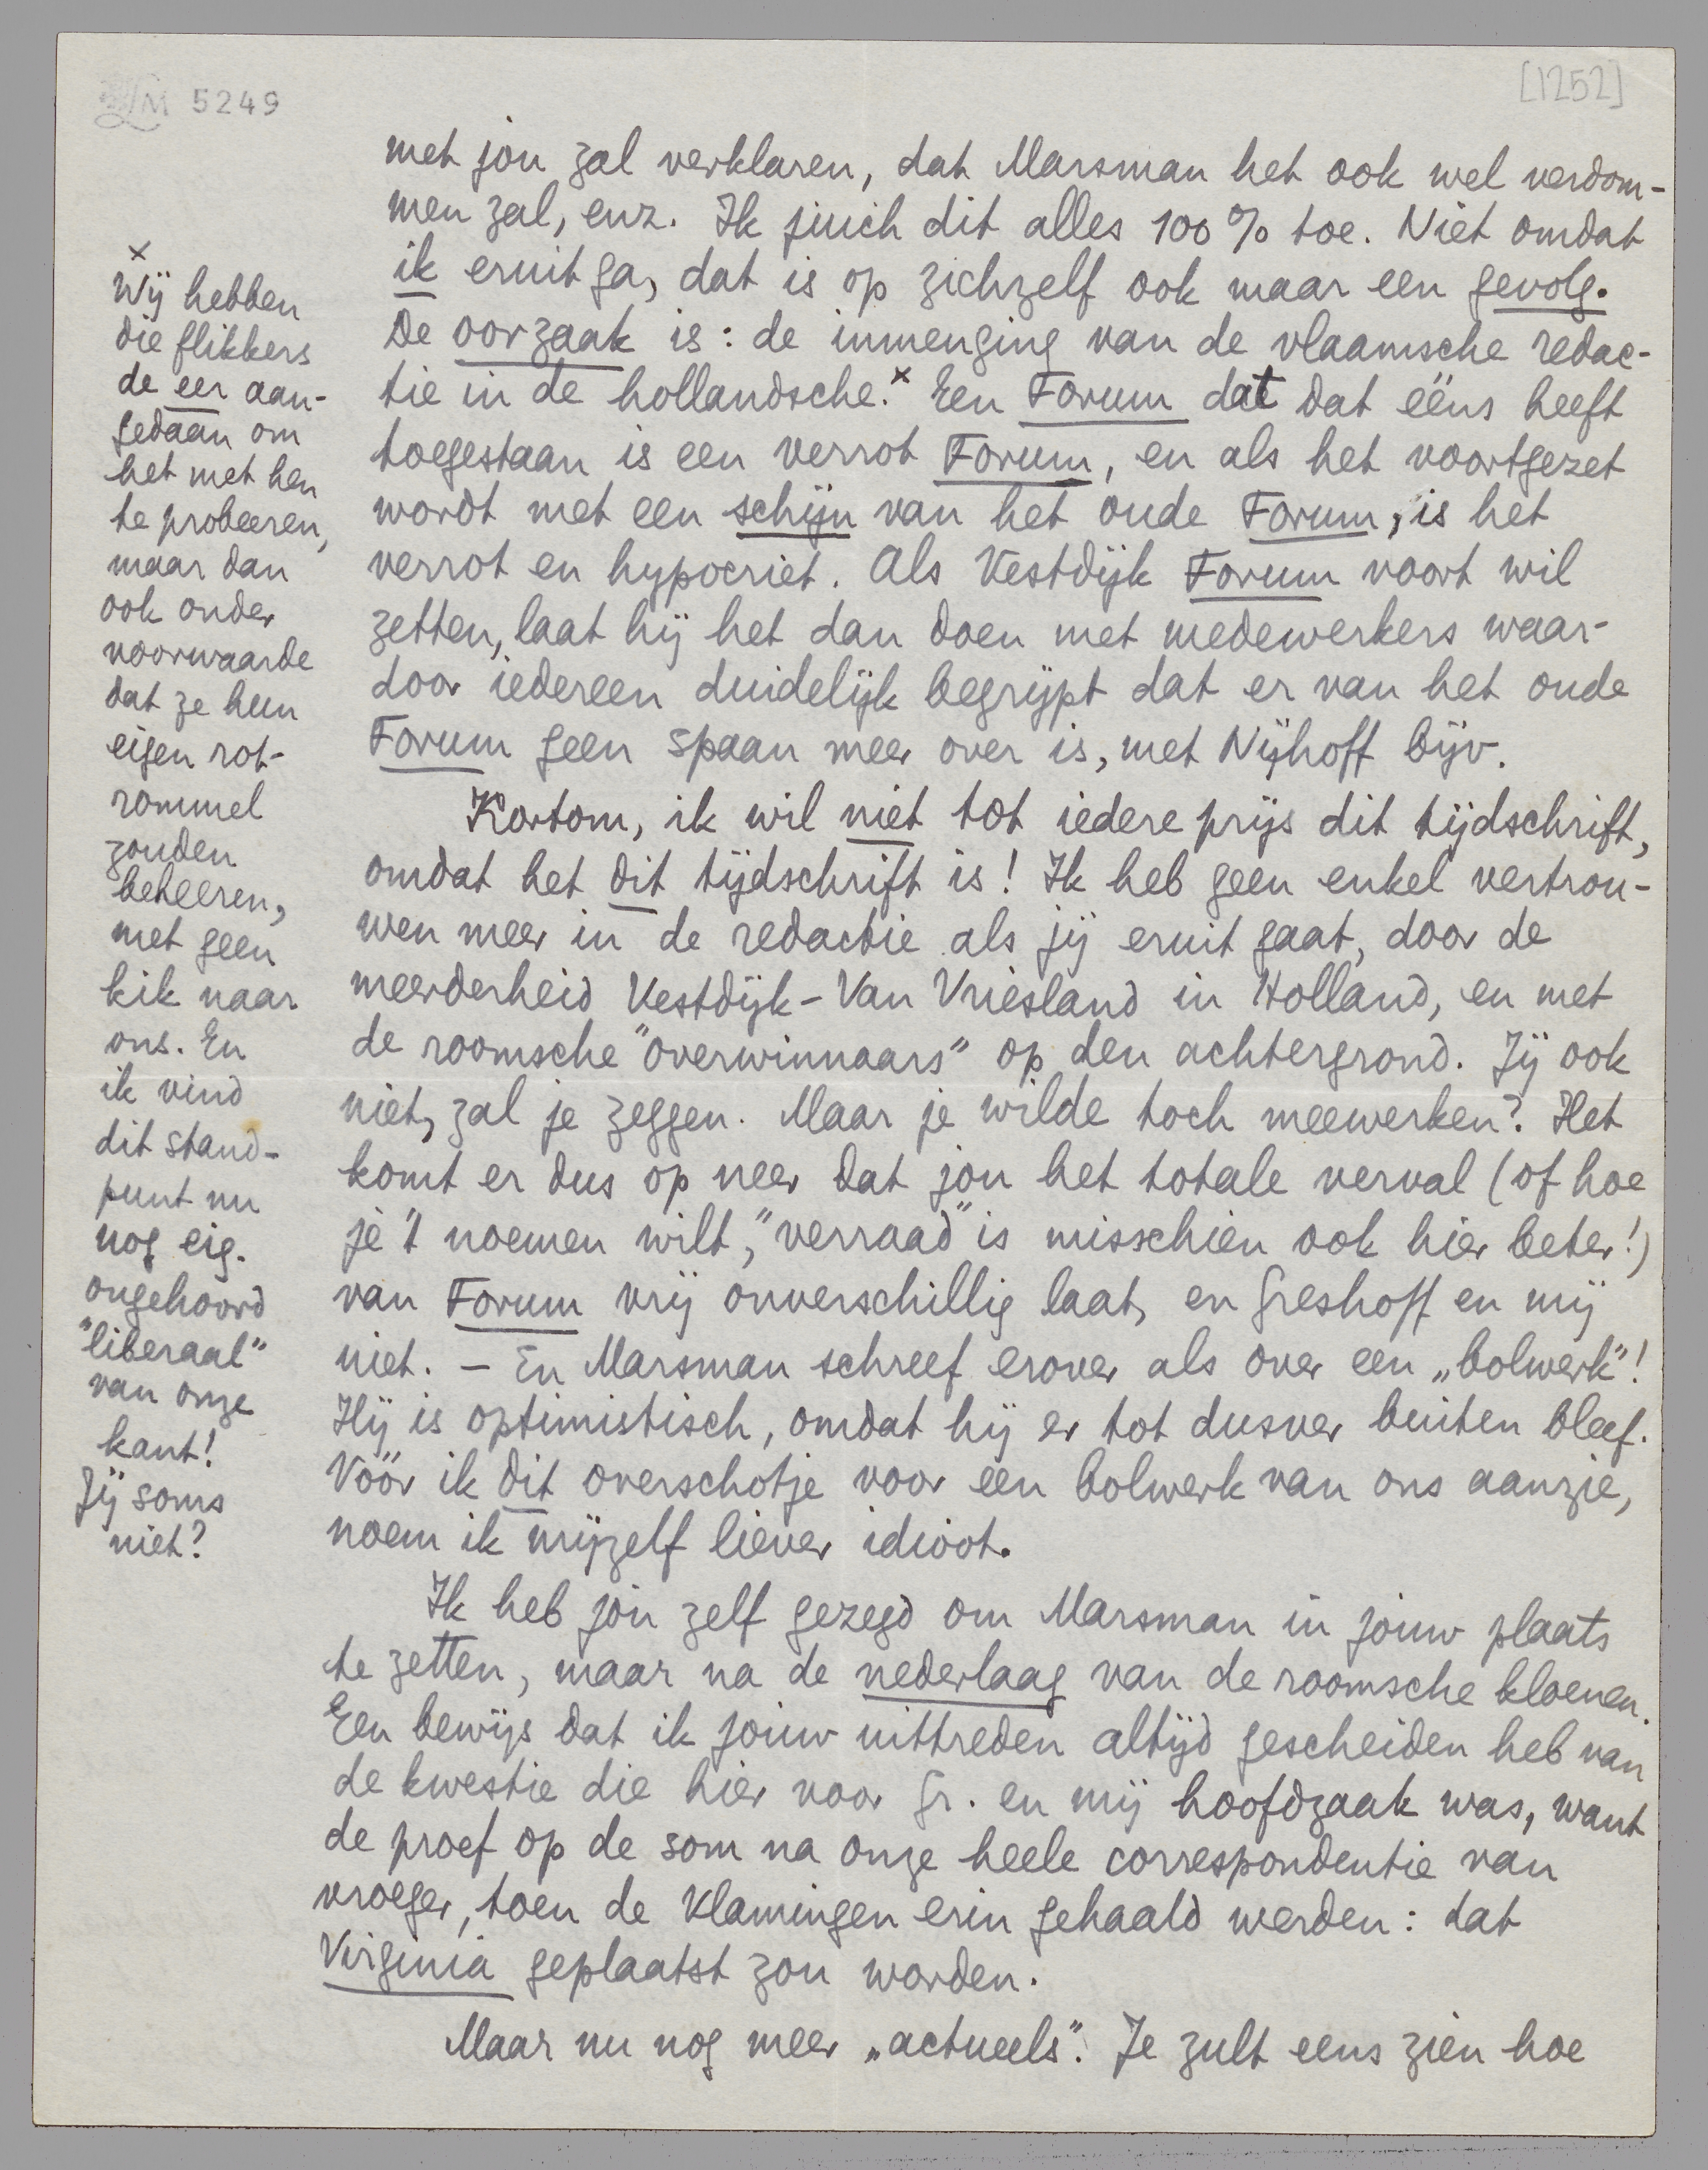 LM 5249
[1252]
met jou zal verklaren, dat Marsman het ook wel verdom-
men zal, enz. Ik juich dit alles 100 % toe. Niet omdat
ik eruit ga, dat is op zichzelf ook maar een gevolg.
De oorzaak is: de inmenging van de vlaamsche redac-
tie in de hollandsche.x Een Forum dat dat ééns heeft
toegestaan is een verrot Forum, en als het voortgezet
wordt met een schijn van het oude Forum, is het
verrot en hypocriet. Als Vestdijk Forum voort wil
zetten, laat hij het dan doen met medewerkers waar-
door iedereen duidelijk begrijpt dat er van het oude
Forum geen spaan meer over is, met Nijhoff bijv.
Kortom, ik wil niet tot iedere prijs dit tijdschrift,
omdat het dit tijdschrift is! Ik heb geen enkel vertrou-
wen meer in de redactie als jij eruit gaat, door de
meerderheid Vestdijk-Van Vriesland in Holland, en met
de roomsche "overwinnaars" op den achtergrond. Jij ook
niet, zal je zeggen. Maar je wilde toch meewerken? Het
komt er dus op neer dat jou het totale verval (of hoe
je 't noemen wilt, "verraad" is misschien ook hier beter!)
van Forum vrij onverschillig laat, en Greshoff en mij
niet. – En Marsman schreef erover als over een „bolwerk"!
Hij is optimistisch, omdat hij er tot dusver buiten bleef.
Vóór ik dit overschotje voor een bolwerk van ons aanzie,
noem ik mijzelf liever idioot.
Ik heb jou zelf gezegd om Marsman in jouw plaats
te zetten, maar na de nederlaag van de roomsche kloenen.
Een bewijs dat ik jouw uittreden altijd gescheiden heb van
de kwestie die hier voor Gr. en mij hoofdzaak was, want
de proef op de som na onze heele correspondentie van
vroeger, toen de Vlamingen erin gehaald werden: dat
Virginia geplaatst zou worden.
Maar nu nog meer „actueels". Je zult eens zien hoe
x
Wij hebben
die flikkers
de eer aan-
gedaan om
het met hen
te probeeren,
maar dan
ook onder
voorwaarde
dat ze hun
eigen rot-
rommel
zouden
beheeren,
met geen
kik naar
ons. En
ik vind
dit stand-
punt nu
nog eig.
ongehoord
"liberaal"
van onze
kant!
Jij soms
niet?